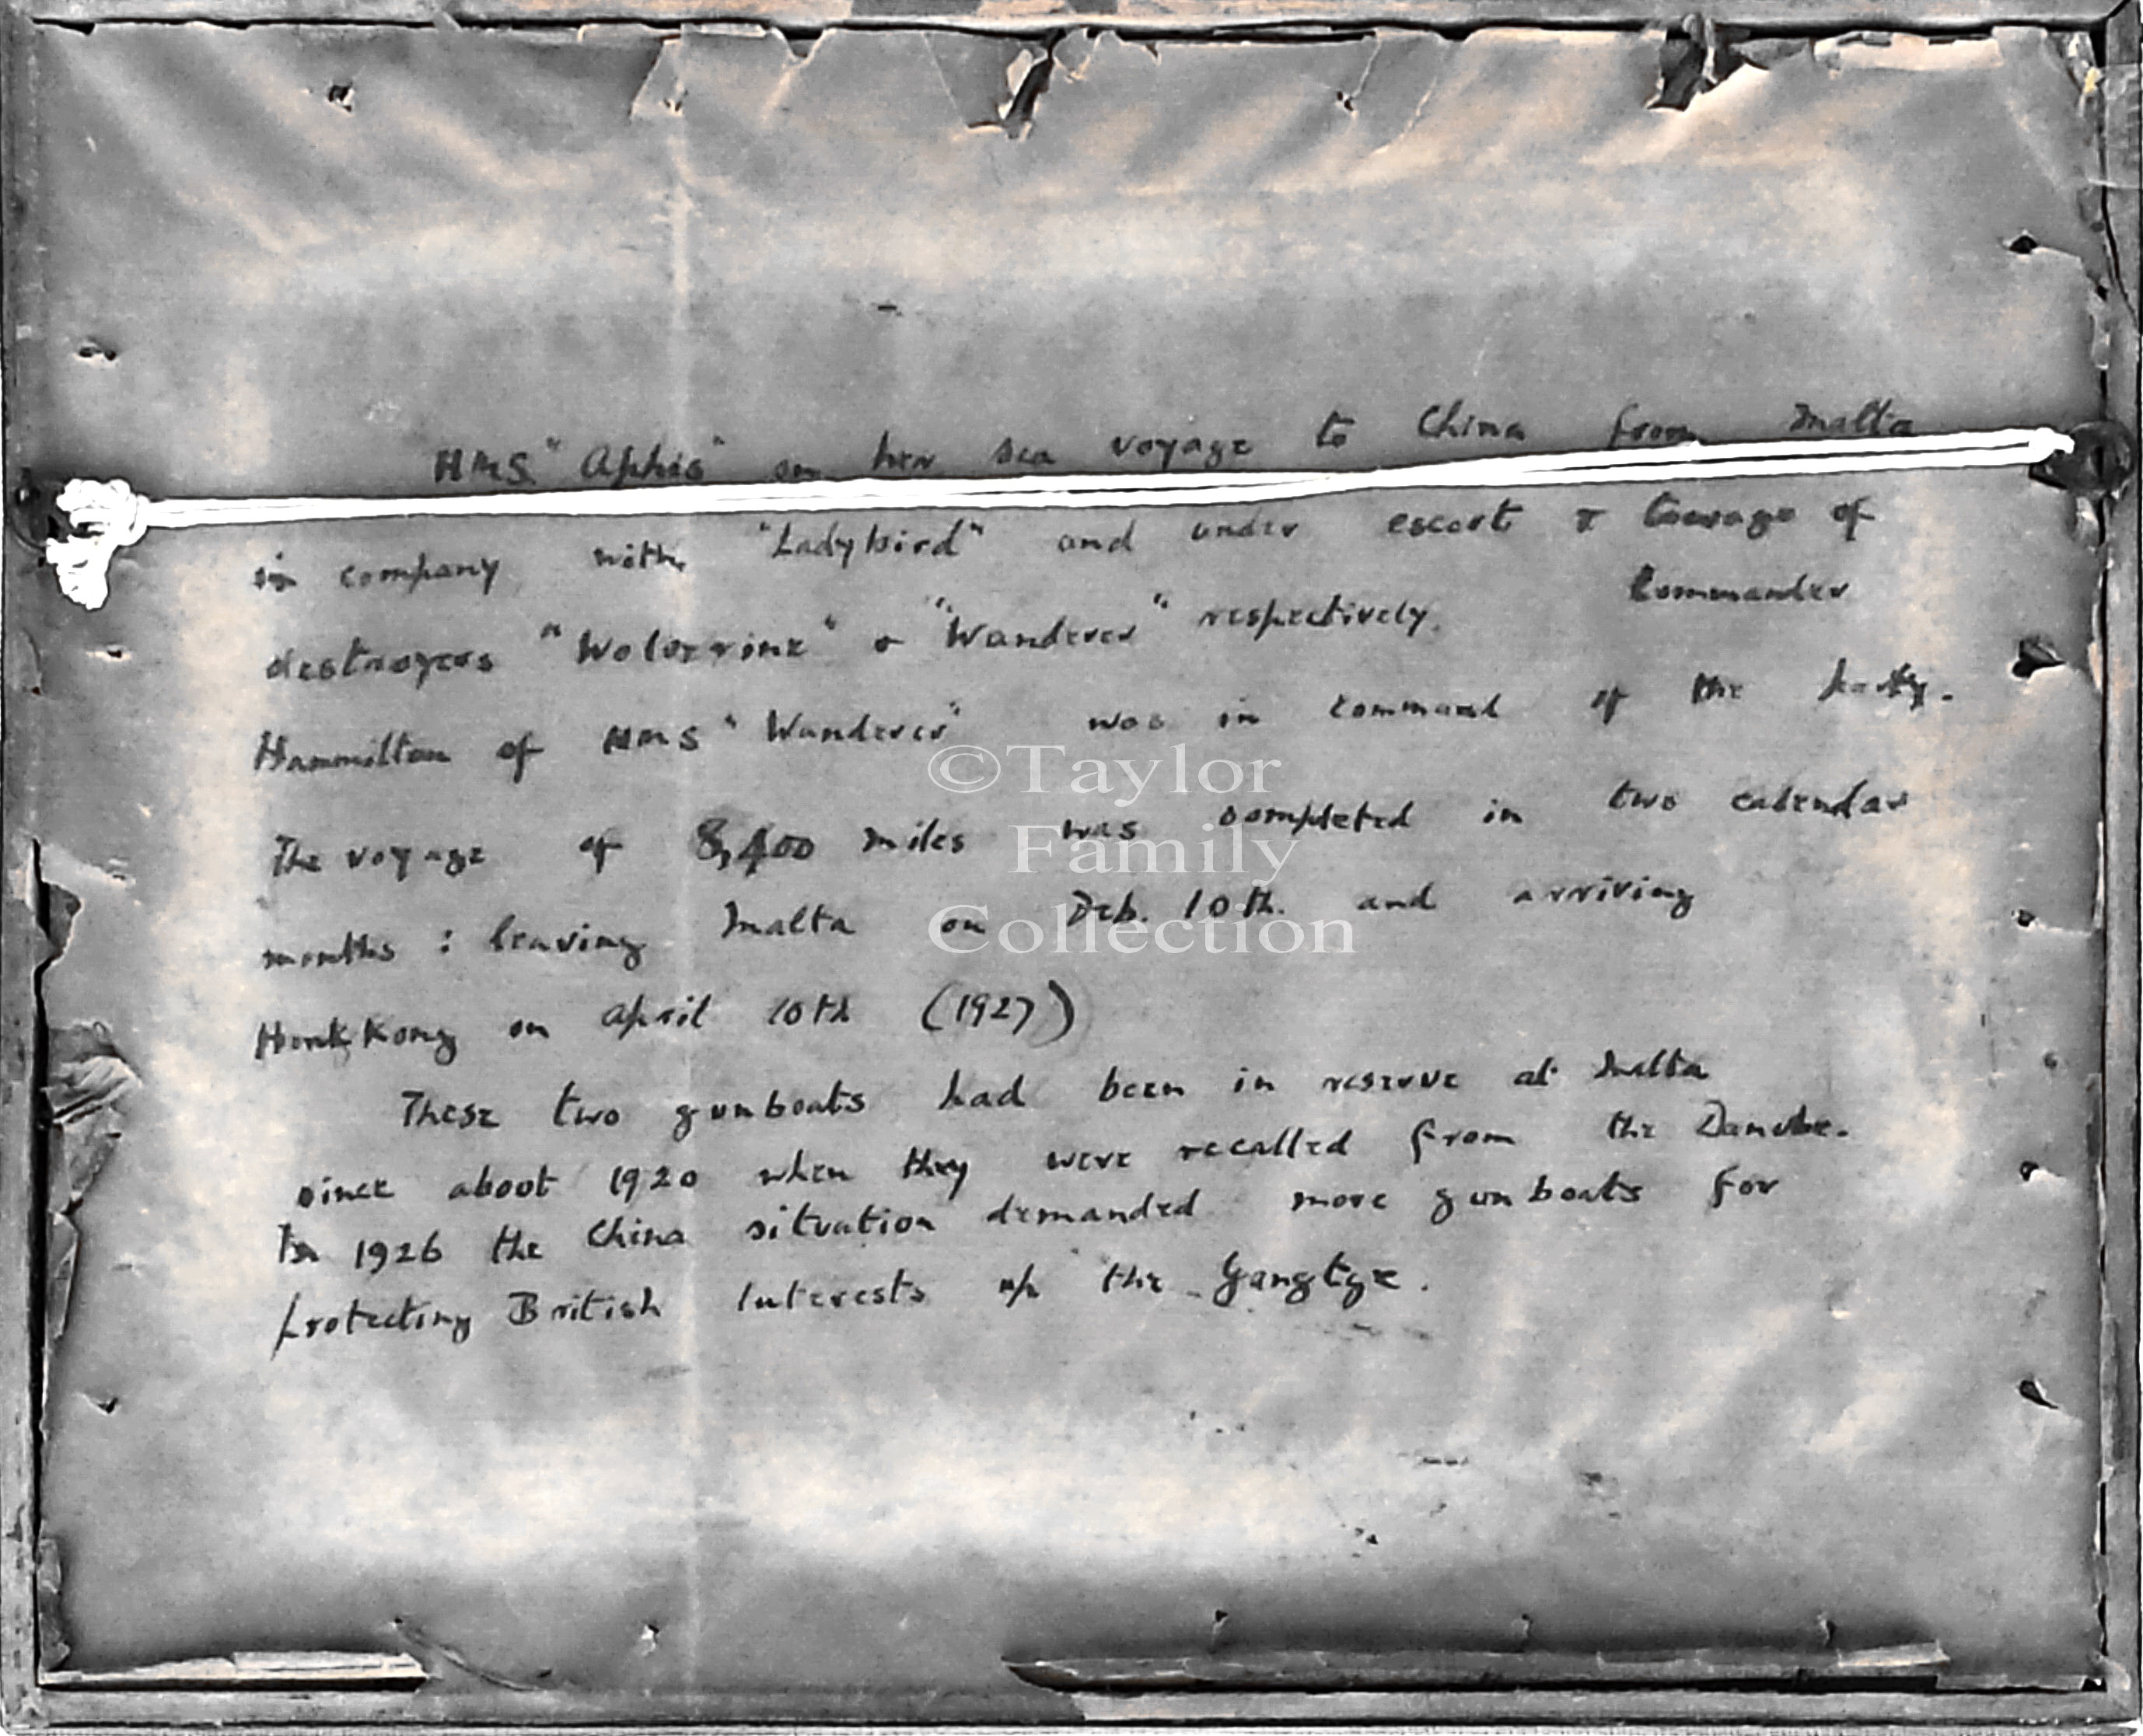 HMS "Aphis" on her sea voyage to China from Malta
in company with "Ladybird" and under escort & towage of
destroyers "Wolverine" & "Wanderer" respectively. Commander
Hammilton of HMS "Wanderer" was in command of the party.
The voyage of 8,400 miles was completed in two calendar
months : leaving Malta on Feb. 10th. and arriving
HonkKong on April 10th (1927)
These two gunboats had been in reserve at Malta
since about 1920 when they were recalled from the Danube.
In 1926 the China situation demanded more gunboats for
protecting British Interests up the Yangtge.
©Taylor
Family
Collection